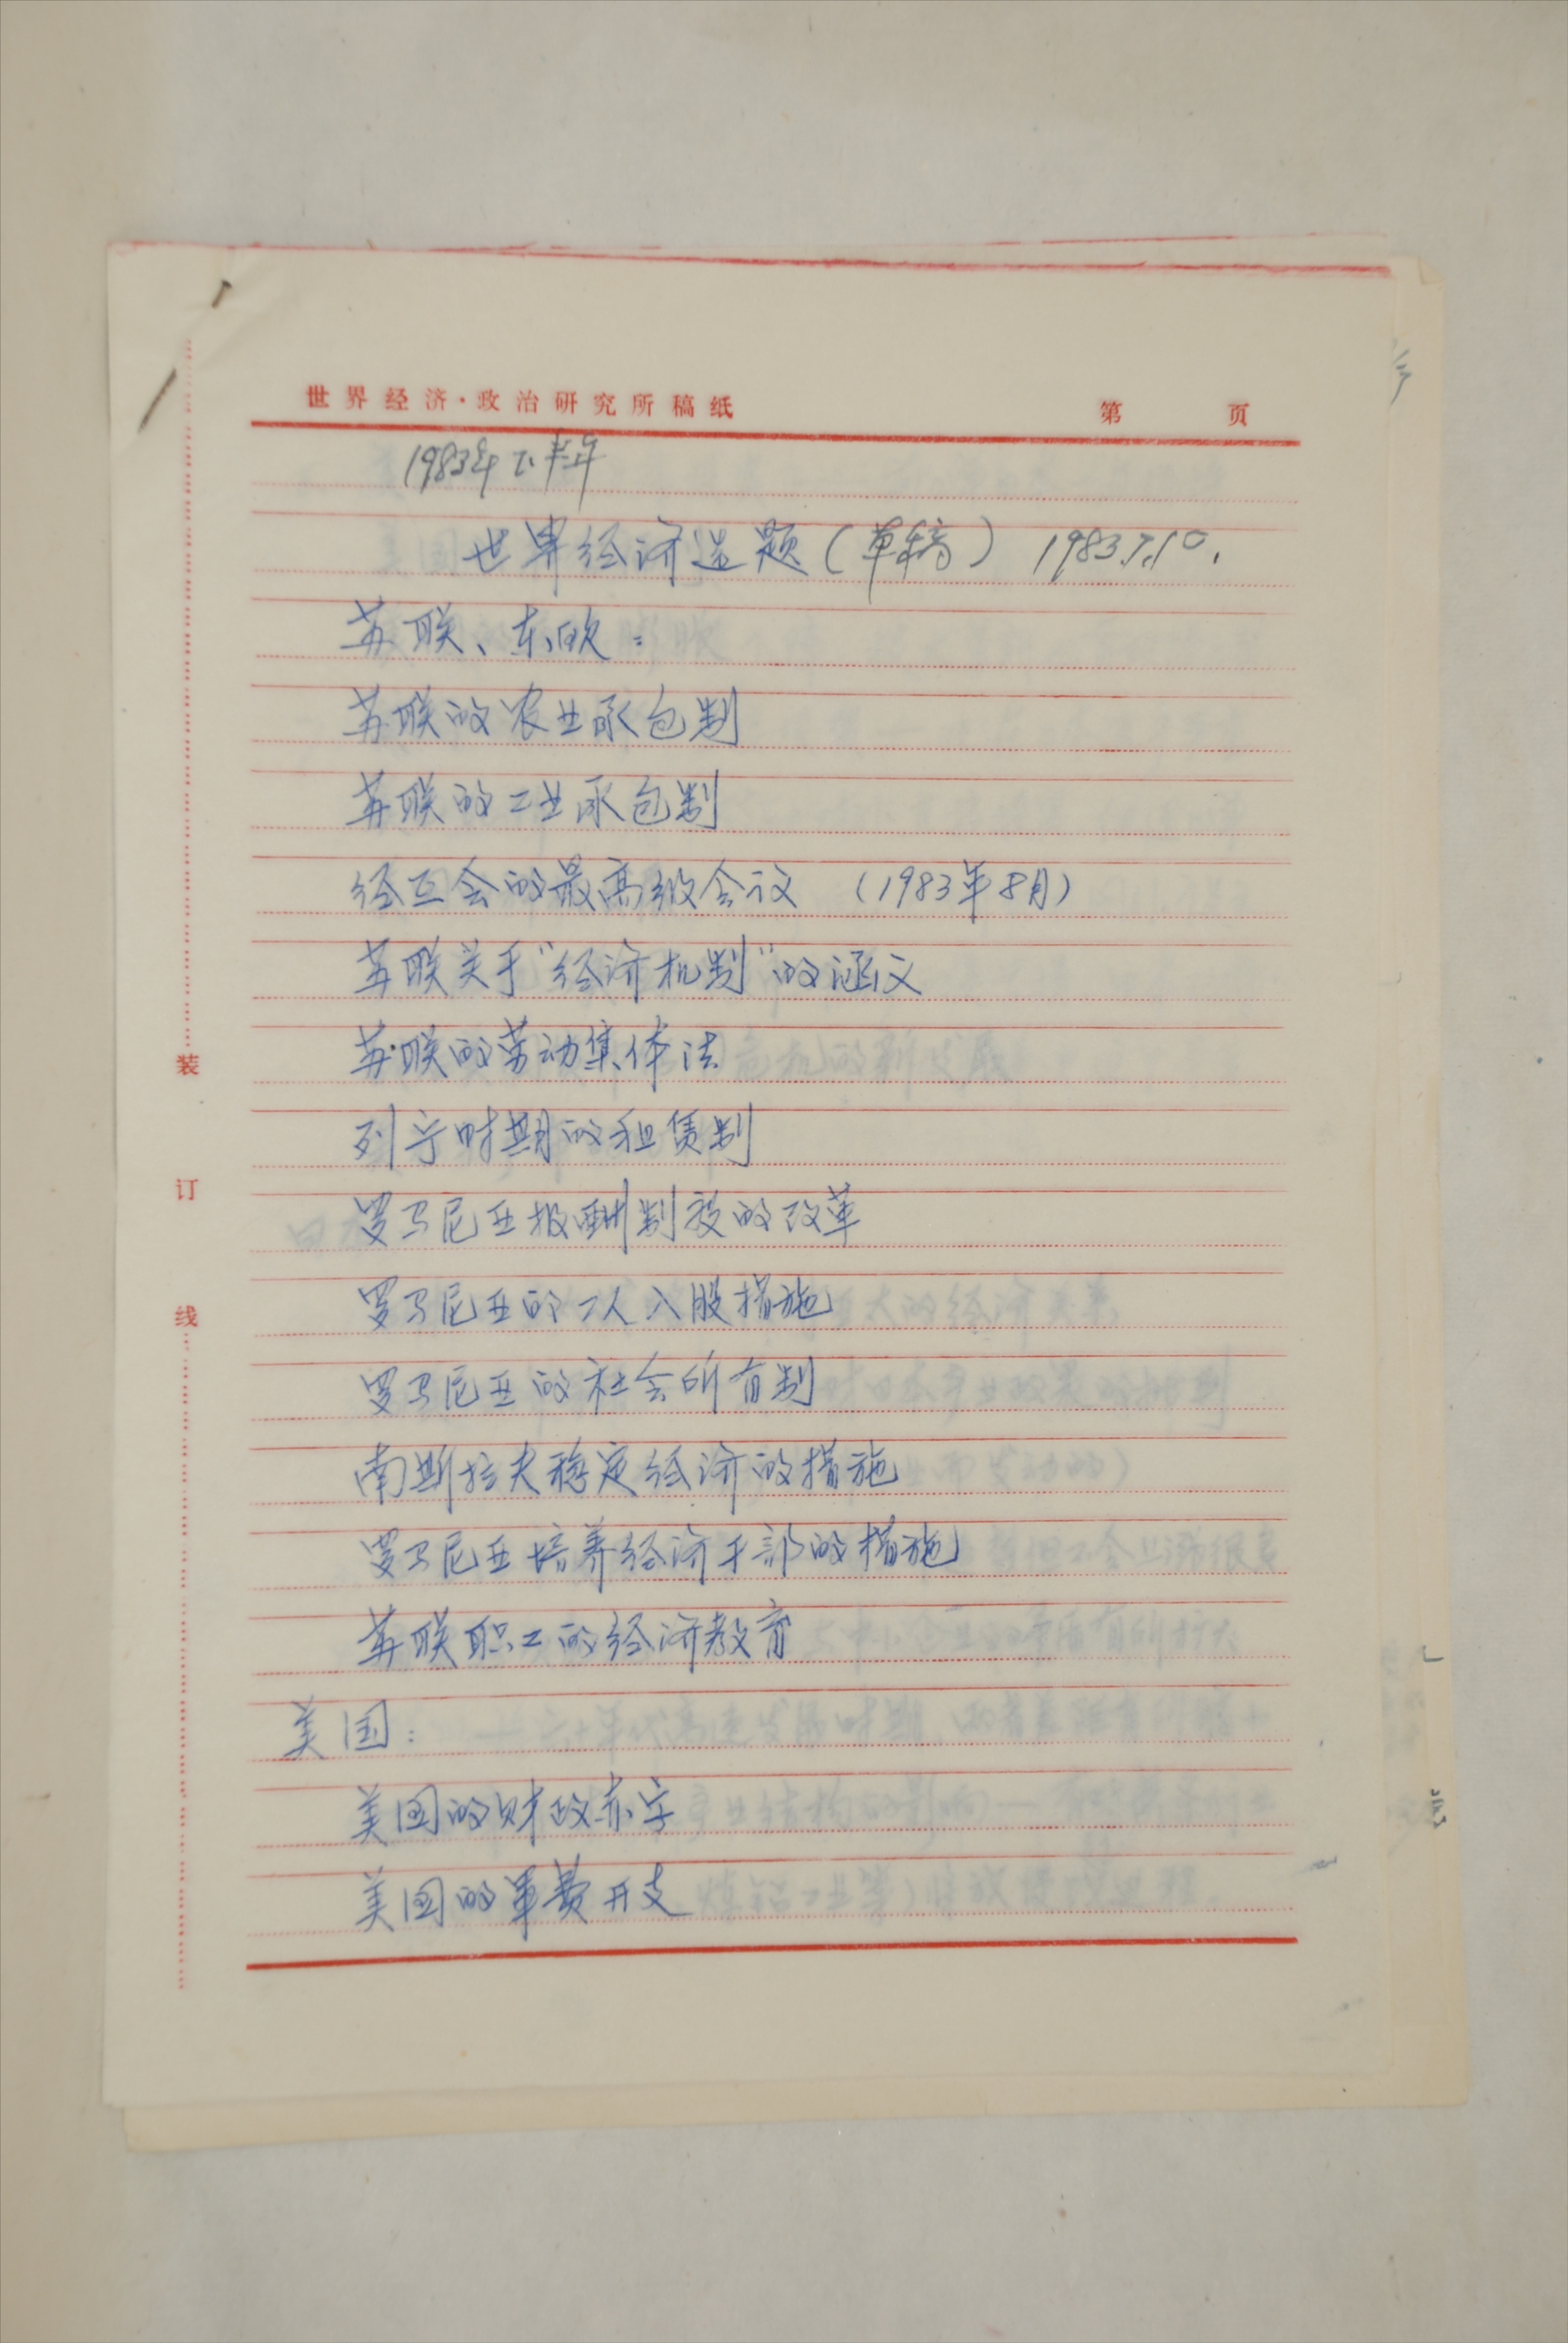 世界经济·政治研究所稿纸 第 页
1983年下半年
世界经济选题(草稿) 1983.7.10.
苏联、东欧:
苏联的农业承包制
苏联的工业承包制
经互会的最高级会议 (1983年8月)
苏联关于"经济机制"的涵义
苏联的劳动集体法
列宁时期的租赁制
罗马尼亚报酬制度的改革
罗马尼亚的工人入股措施
罗马尼亚的社会所有制
南斯拉夫稳定经济的措施
罗马尼亚培养经济干部的措施
苏联职工的经济教育
美国:
美国的财政赤字
美国的军费开支
装
订
线